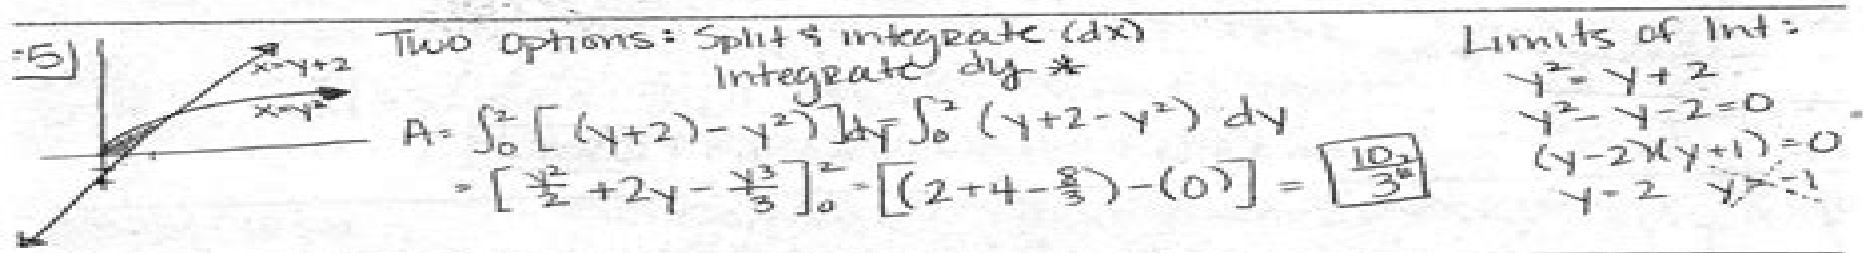 5)
x=y+2
x=y²
Two options: Split & integrate (dx)
Integrate dy *
A = ∫₀² [(y+2)-y²)]dy = ∫₀² (y+2-y²) dy
= [y²/2 + 2y - y³/3]₀² = [(2+4-8/3)-(0)] = 10/3
Limits of Int:
y² = y+2
y²-y-2=0
(y-2)(y+1)=0
y=2 y=-1